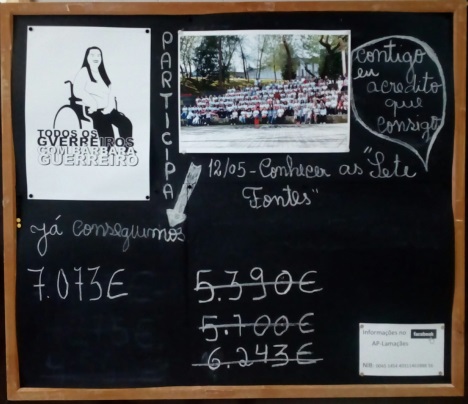 TODOS OS
GVERREIROS
COM BÁRBARA
GUERREIRO
PARTICIPA
Contigo
eu
acredito
que
consigo
12/05 - Conhecer as "Sete
Fontes"
Já conseguimos
7.073€
5.390€
5.700€
6.243€
Informações no facebook
AP-Lamações
NIB: